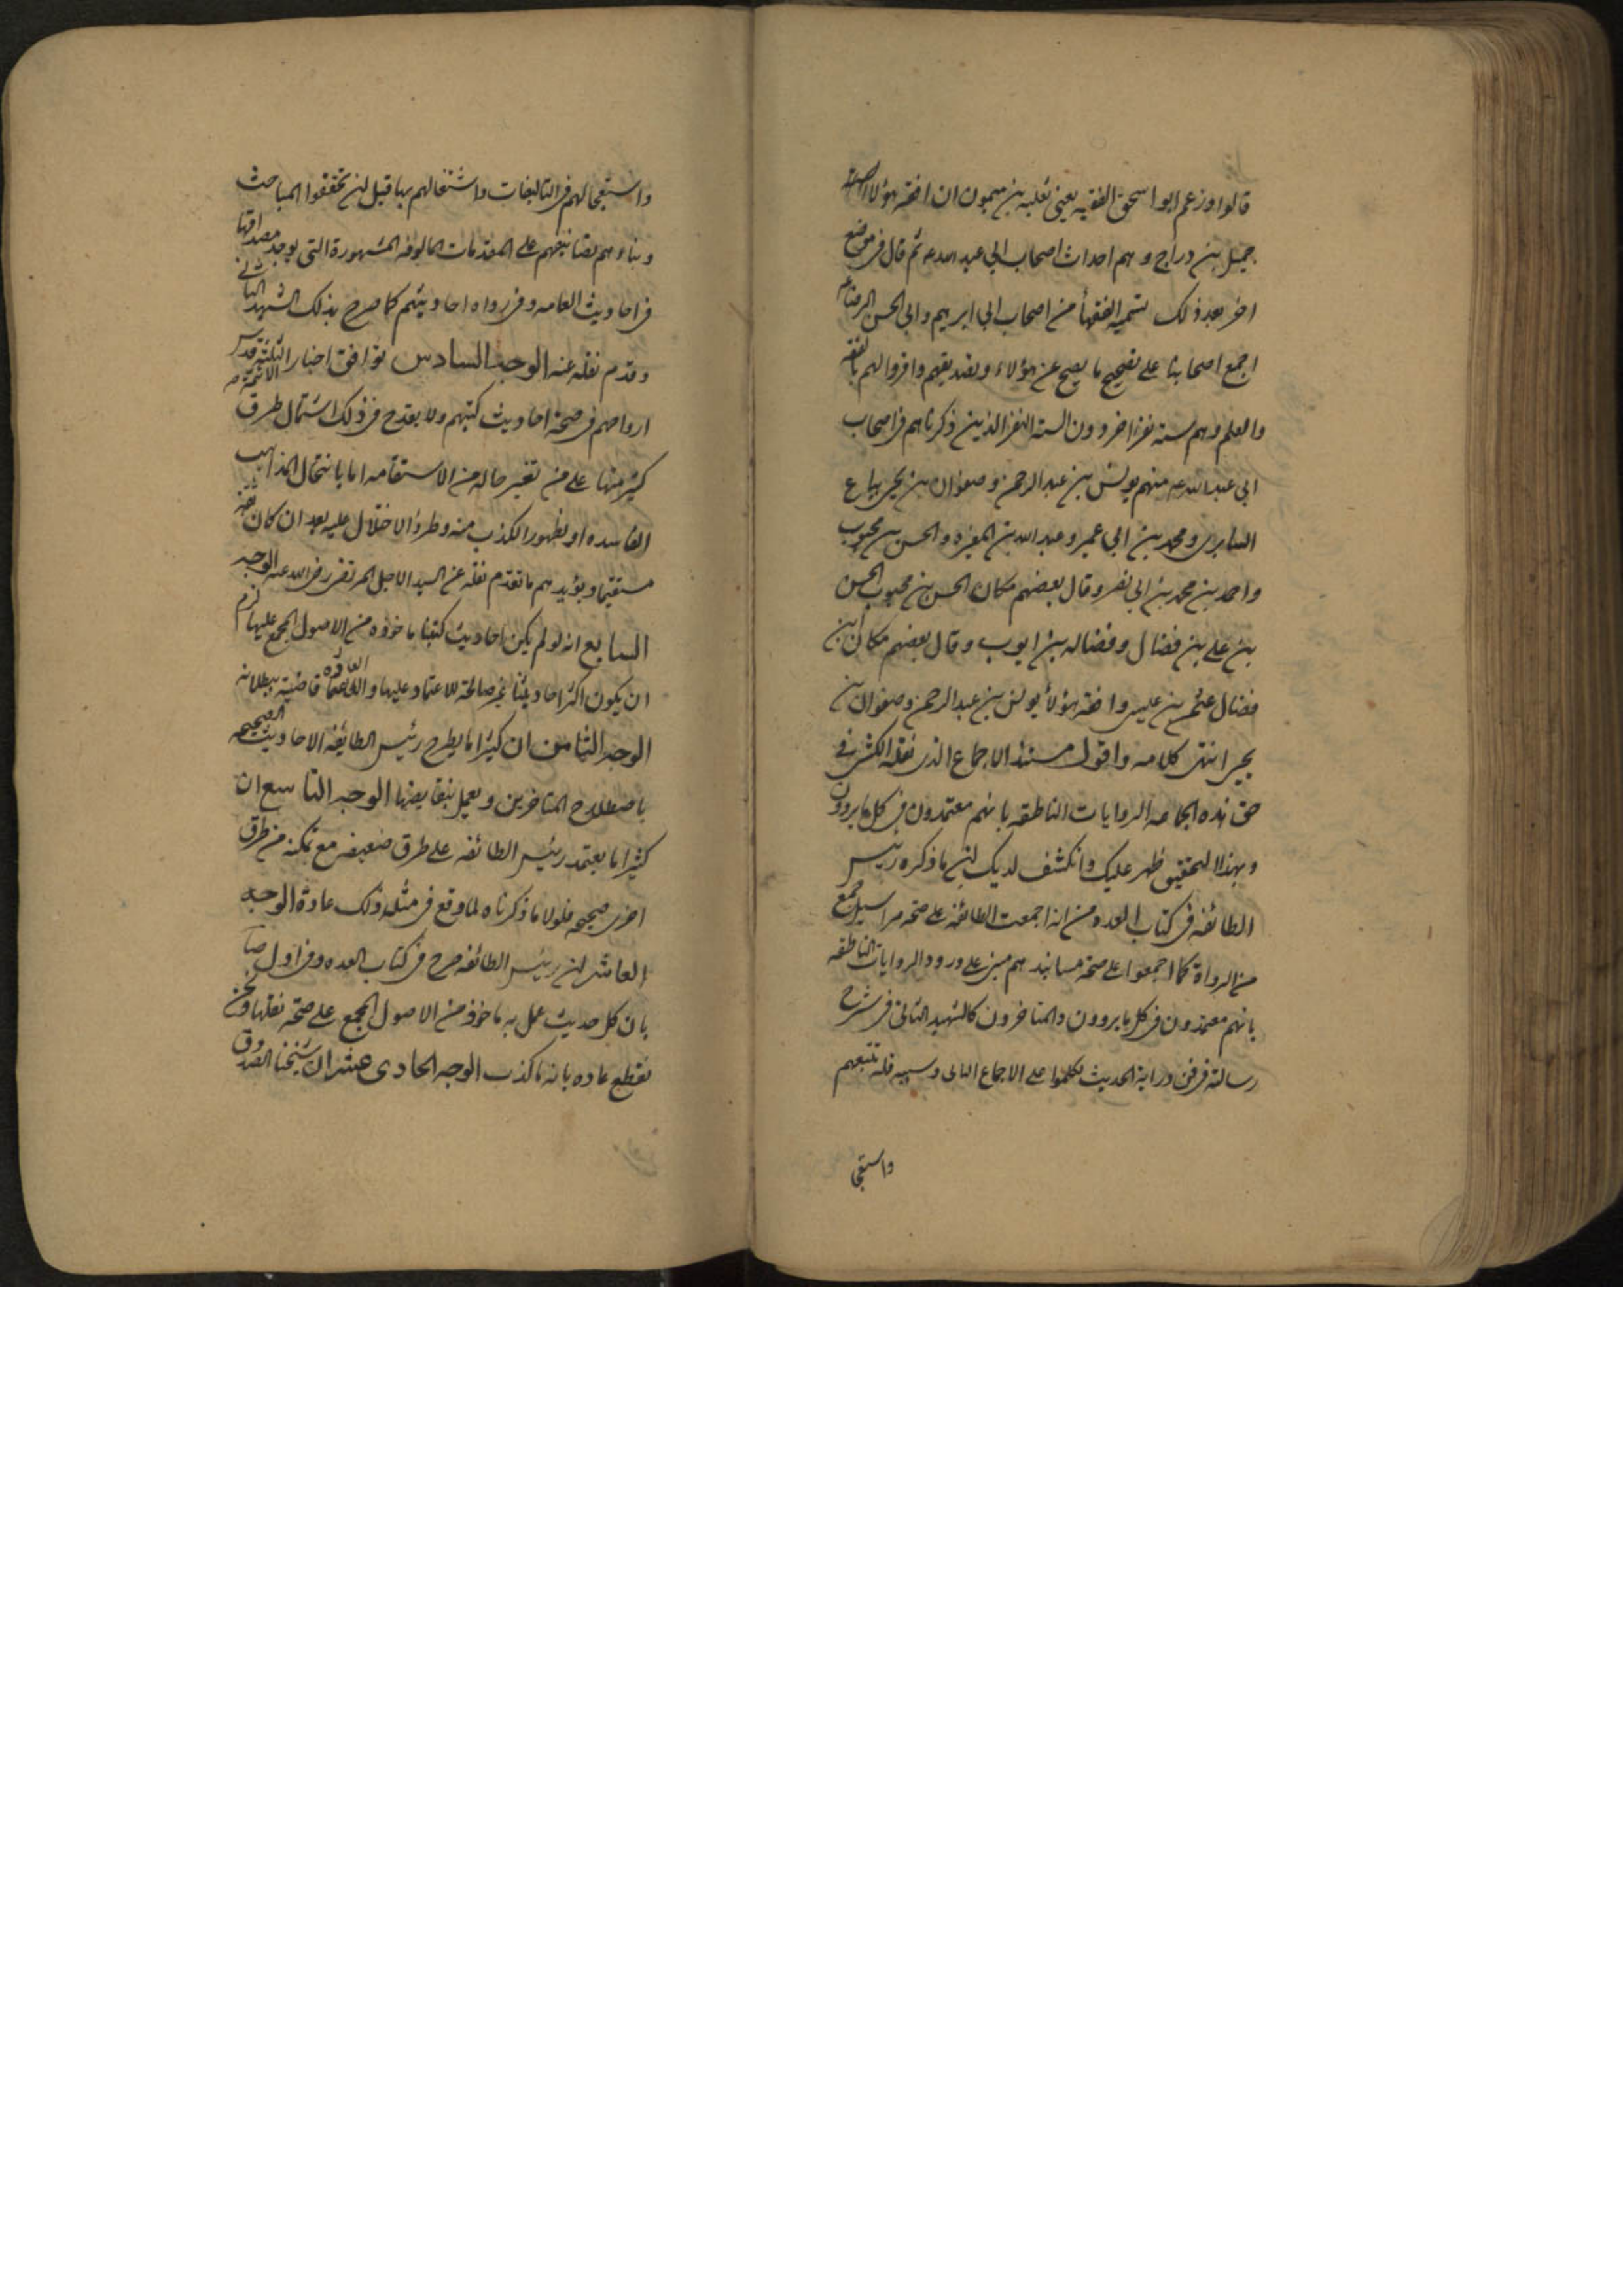 قالوا وزعم ابو اسحق الفقيه يعنى ثعلبه بن ميمون ان افقه هؤلاء
جميل بن دراج وهم احداث اصحاب ابى عبد الله ع ثم قال فى موضع
اخر بعد ذلك تسميه الفقهاء من اصحاب ابى ابرهيم وابى الحسن الرضا ع
اجمع اصحابنا على تصحيح ما يصح عن هؤلاء وتصديقهم واقروا لهم بالفقه
والعلم وهم سته نفر اخر دون السته النفر الذين ذكرناهم فى اصحاب
ابى عبد الله ع منهم يونس بن عبد الرحمن وصفوان بن يحيى بياع
السابرى ومحمد بن ابى عمير وعبد الله بن المغيره والحسن بن محبوب
واحمد بن محمد بن ابى نصر وقال بعضهم مكان الحسن بن محبوب الحسن
بن على بن فضال وفضاله بن ايوب وقال بعضهم مكان ابن
فضال عثمن بن عيسى وافقه هؤلاء يونس بن عبد الرحمن وصفوان بن
يحيى انتهى كلامه واقول مستند الاجماع الذى نقله الكشى فى
حق هذه الجماعه الروايات الناطقه بانهم معتمدون فى كل ما يروون
وبهذا التحقيق ظهر عليك وانكشف لديك ان ما ذكره رئيس
الطائفه فى كتاب العده من انه اجمعت الطائفه على صحه مراسيل جمع
من الرواة كما اجمعوا على صحه مسانيدهم مبنى على ورود الروايات الناطقه
بانهم معتمدون فى كل ما يروون والمتاخرون كالشهيد الثانى فى شرح
رسالته فى فن دراية الحديث تكلموا على الاجماع الثانى وسببه قلة تتبعهم
واستعجا
واستعجالهم فى التاليفات واشتغالهم بها قبل ان تحققوا المباحث
وبناؤهم تصانيفهم على المقدمات المالوفه المشهورة التى يوجد مصداقها
فى احاديث العامه وفى رواه احاديثهم كما صرح بذلك الشهيد الثانى
وقدم نقله عنه الوجه السادس توافق اخبار الائمة الثلثة قدس
ارواحهم فى صحة احاديث كتبهم ولا يقدح فى ذلك اشتمال طرق
كثير منها على من تغير حاله من الاستقامه اما بانتحال المذاهب
الفاسده او بظهور الكذب منه وطروء الاختلال عليه بعد ان كان ثقه
مستقيما ويؤيدهم ما تقدم نقله عن السيد الاجل المرتضى رضى الله عنه الوجه
السابع انه لو لم يكن احاديث كتبنا ماخوذه من الاصول المجمع عليها لزم
ان يكون اكثر احاديثنا غير صالحة للاعتماد عليها والعادة قاضية ببطلانه
الوجه الثامن ان كثيرا ما يطرح رئيس الطايفه الاحاديث الصحيحه
باصطلاح المتاخرين ويعمل بنقايضها الوجه التاسع ان
كثيرا ما يعتمد رئيس الطائفه على طرق ضعيفه مع تمكنه من طرق
اخرى صحيحه فلولا ما ذكرناه لما وقع فى مثله ذلك عادة الوجه
العاشر ان رئيس الطائفه صرح فى كتاب العده وفى اول صا
بان كل حديث عمل به ماخوذ من الاصول المجمع على صحة نقلها ونحن
نقطع عاده بانه ما كذب الوجه الحادى عشر ان شيخنا الصدوق